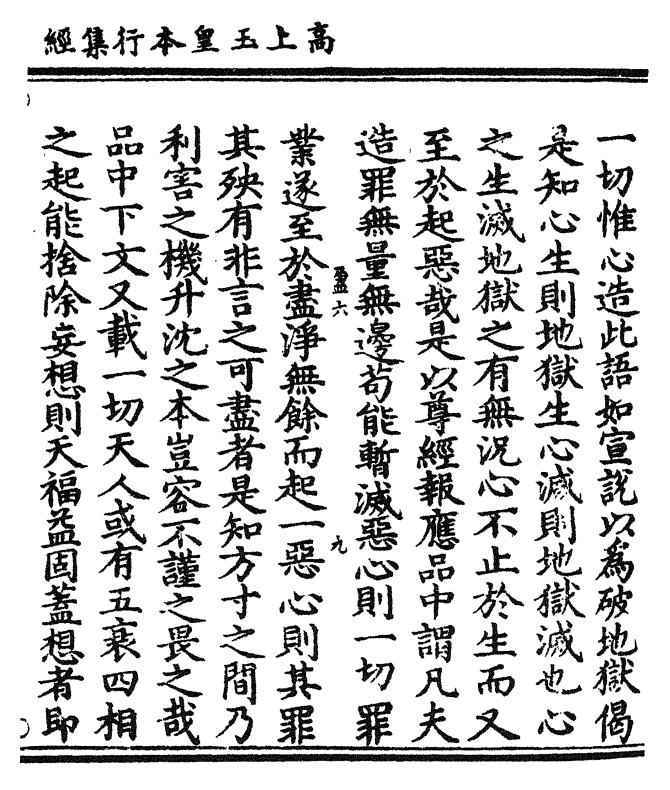 高上玉皇本行集經
一切惟心造此語如宣說以爲破地獄偈
是知心生則地獄生心滅則地獄滅也心
之生滅地獄之有無況心不止於生而又
至於起惡哉是以尊經報應品中謂凡夫
造罪無量無邊苟能暫滅惡心則一切罪
盈六
九
業遂至於盡淨無餘而起一惡心則其罪
其殃有非言之可盡者是知方寸之間乃
利害之機升沈之本豈容不謹之畏之哉
品中下文又載一切天人或有五衰四相
之起能捨除妄想則天福益固蓋想者即